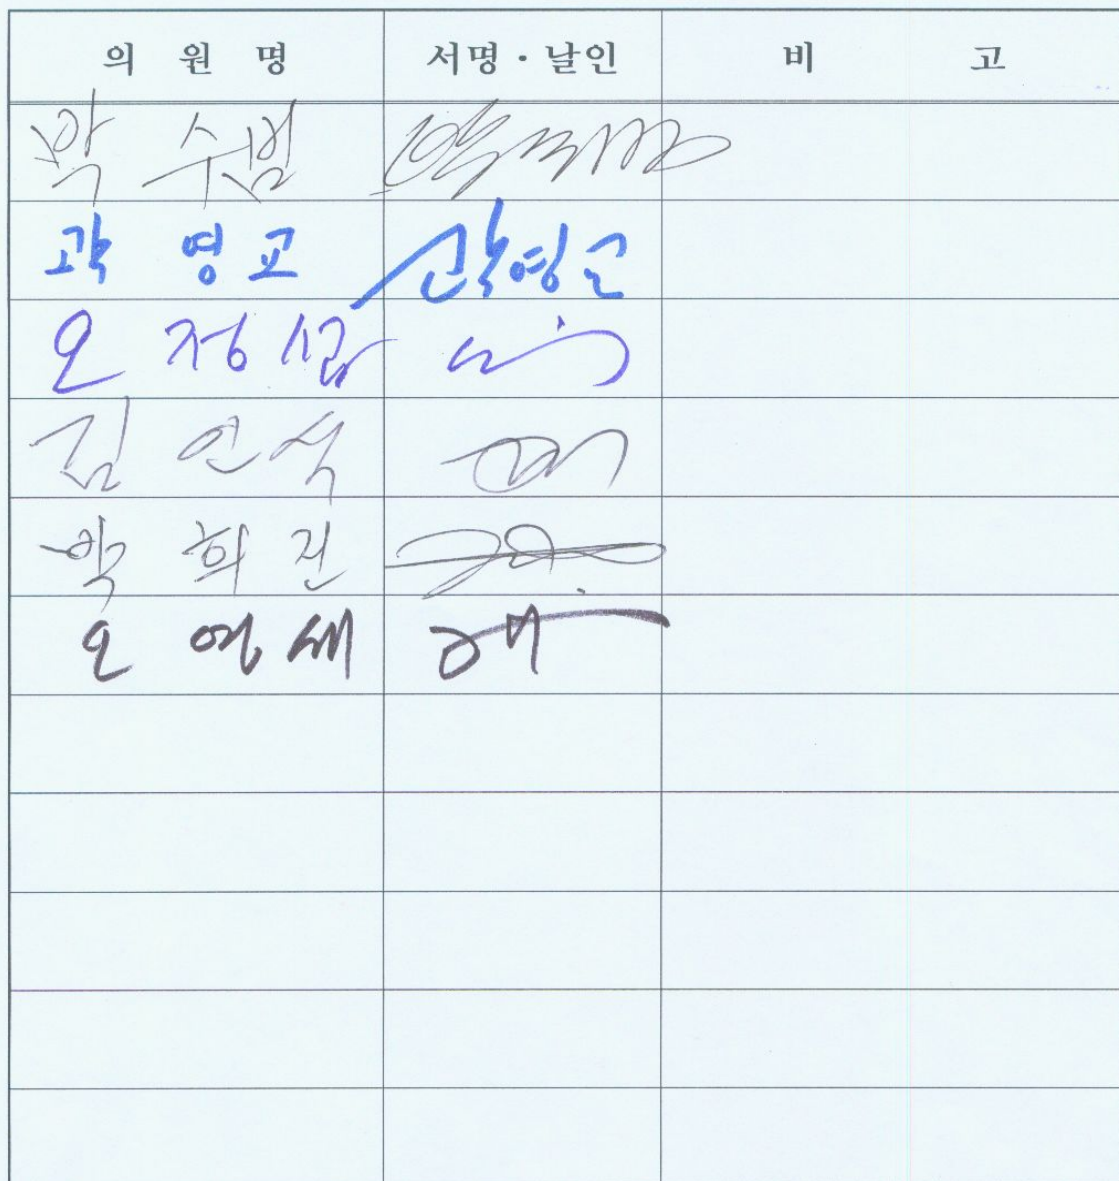 의 원 명 서명·날인 비 고
박 수범
곽 영교 곽영교
오 정섭
김 인식
박 희진
오 영세